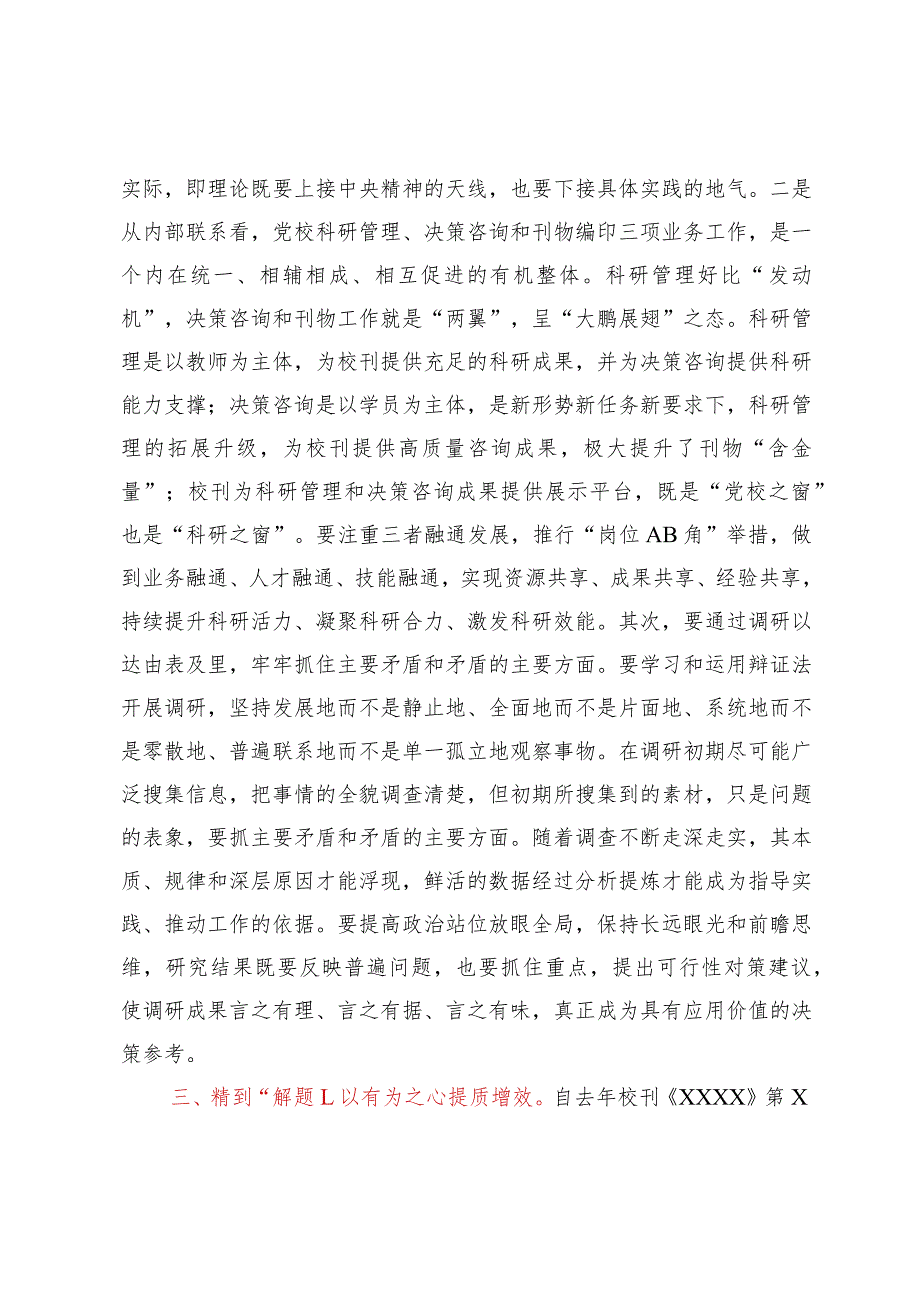 实际，即理论既要上接中央精神的天线，也要下接具体实践的地气。二是
从内部联系看，党校科研管理、决策咨询和刊物编印三项业务工作，是一
个内在统一、相辅相成、相互促进的有机整体。科研管理好比“发动
机”，决策咨询和刊物工作就是“两翼”，呈“大鹏展翅”之态。科研管
理是以教师为主体，为校刊提供充足的科研成果，并为决策咨询提供科研
能力支撑；决策咨询是以学员为主体，是新形势新任务新要求下，科研管
理的拓展升级，为校刊提供高质量咨询成果，极大提升了刊物“含金
量”；校刊为科研管理和决策咨询成果提供展示平台，既是“党校之窗”
也是“科研之窗”。要注重三者融通发展，推行“岗位 AB 角”举措，做
到业务融通、人才融通、技能融通，实现资源共享、成果共享、经验共享，
持续提升科研活力、凝聚科研合力、激发科研效能。其次，要通过调研以
达由表及里，牢牢抓住主要矛盾和矛盾的主要方面。要学习和运用辩证法
开展调研，坚持发展地而不是静止地、全面地而不是片面地、系统地而不
是零散地、普遍联系地而不是单一孤立地观察事物。在调研初期尽可能广
泛搜集信息，把事情的全貌调查清楚，但初期所搜集到的素材，只是问题
的表象，要抓主要矛盾和矛盾的主要方面。随着调查不断走深走实，其本
质、规律和深层原因才能浮现，鲜活的数据经过分析提炼才能成为指导实
践、推动工作的依据。要提高政治站位放眼全局，保持长远眼光和前瞻思
维，研究结果既要反映普遍问题，也要抓住重点，提出可行性对策建议，
使调研成果言之有理、言之有据、言之有味，真正成为具有应用价值的决
策参考。
三、精到“解题 L 以有为之心提质增效。自去年校刊《XXXX》第 X